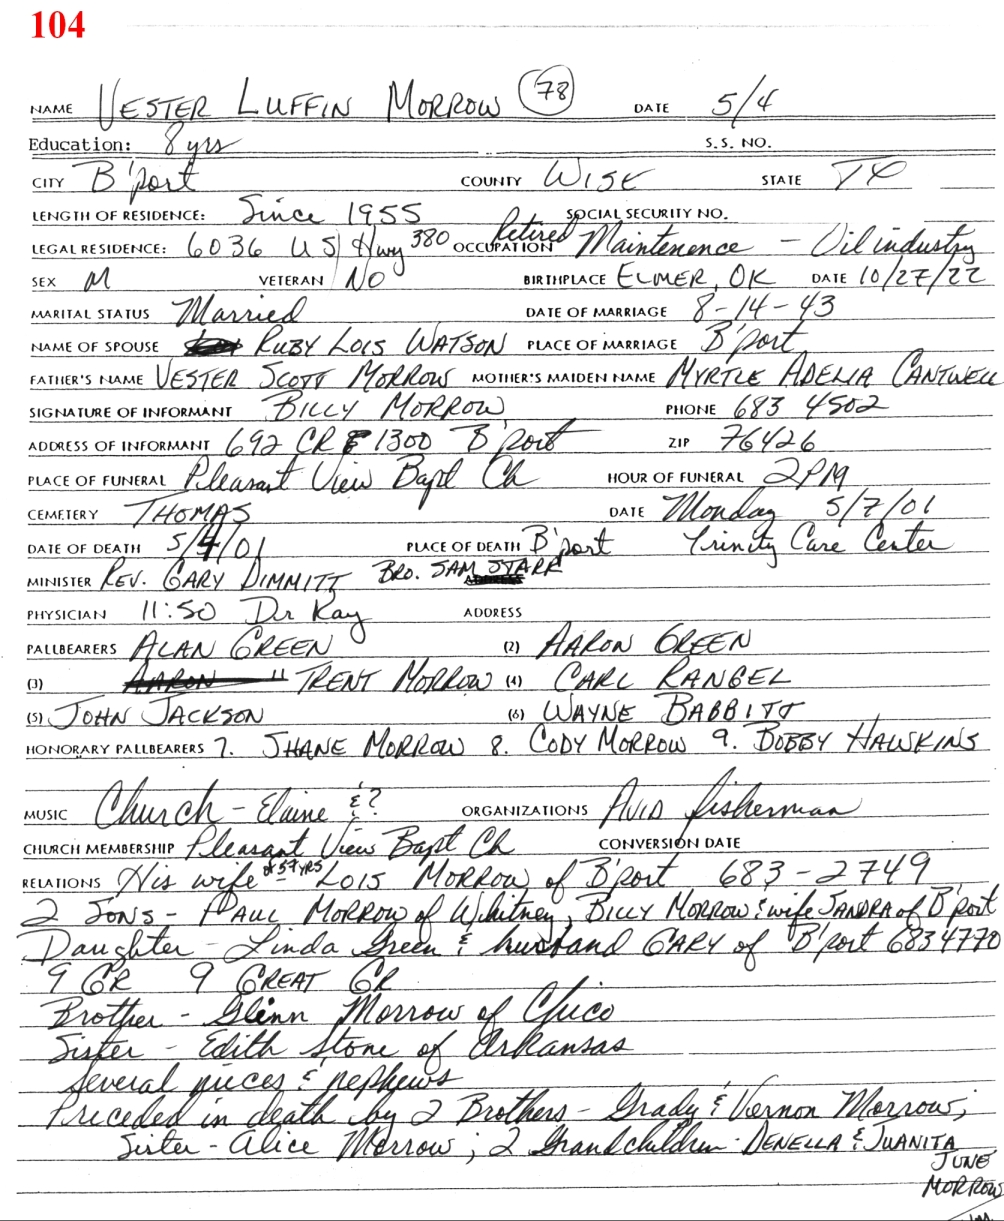 104
NAME VESTER LUFFIN MORROW 78 DATE 5/4
Education: 8 yrs S.S. NO.
CITY B'port COUNTY WISE STATE TX
LENGTH OF RESIDENCE: Since 1955 SOCIAL SECURITY NO.
LEGAL RESIDENCE: 6036 US Hwy 380 OCCUPATION Retired Maintenence - Oil industry
SEX M VETERAN NO BIRTHPLACE ELMER, OK DATE 10/27/22
MARITAL STATUS Married DATE OF MARRIAGE 8-14-43
NAME OF SPOUSE RUBY LOIS WATSON PLACE OF MARRIAGE B'port
FATHER'S NAME VESTER SCOTT MORROW MOTHER'S MAIDEN NAME MYRTLE ADELIA CANTWELL
SIGNATURE OF INFORMANT BILLY MORROW PHONE 683 4502
ADDRESS OF INFORMANT 692 CR 1300 B'port ZIP 76426
PLACE OF FUNERAL Pleasant View Bapt Ch HOUR OF FUNERAL 2PM
CEMETERY THOMAS DATE Monday 5/7/01
DATE OF DEATH 5/4/01 PLACE OF DEATH B'port Trinity Care Center
MINISTER REV. GARY DIMMITT BRO. SAM STARR
PHYSICIAN 11:50 Dr Kay ADDRESS
PALLBEARERS ALAN GREEN (2) AARON GREEN
(3) AARON " TRENT MORROW (4) CARL RANGEL
(5) JOHN JACKSON (6) WAYNE BABBITT
HONORARY PALLBEARERS 7. SHANE MORROW 8. CODY MORROW 9. BOBBY HAWKINS
MUSIC Church - Elaine & ? ORGANIZATIONS AVID fisherman
CHURCH MEMBERSHIP Pleasant View Bapt Ch CONVERSION DATE
RELATIONS His wife of 57 YRS LOIS MORROW of B'port 683-2749
2 SONS - PAUL MORROW of Whitney, BILLY MORROW & wife SANDRA of B'port
Daughter - Linda Green & husband GARY of B'port 6834770
9 GR 9 GREAT GR
Brother - Glenn Morrow of Chico
Sister - Edith Stone of Arkansas
Several nieces & nephews
Preceded in death by 2 Brothers - Grady & Vernon Morrow;
Sister - Alice Morrow; 2 Grandchildren - DENELLA & JUANITA
JUNE
MORROW